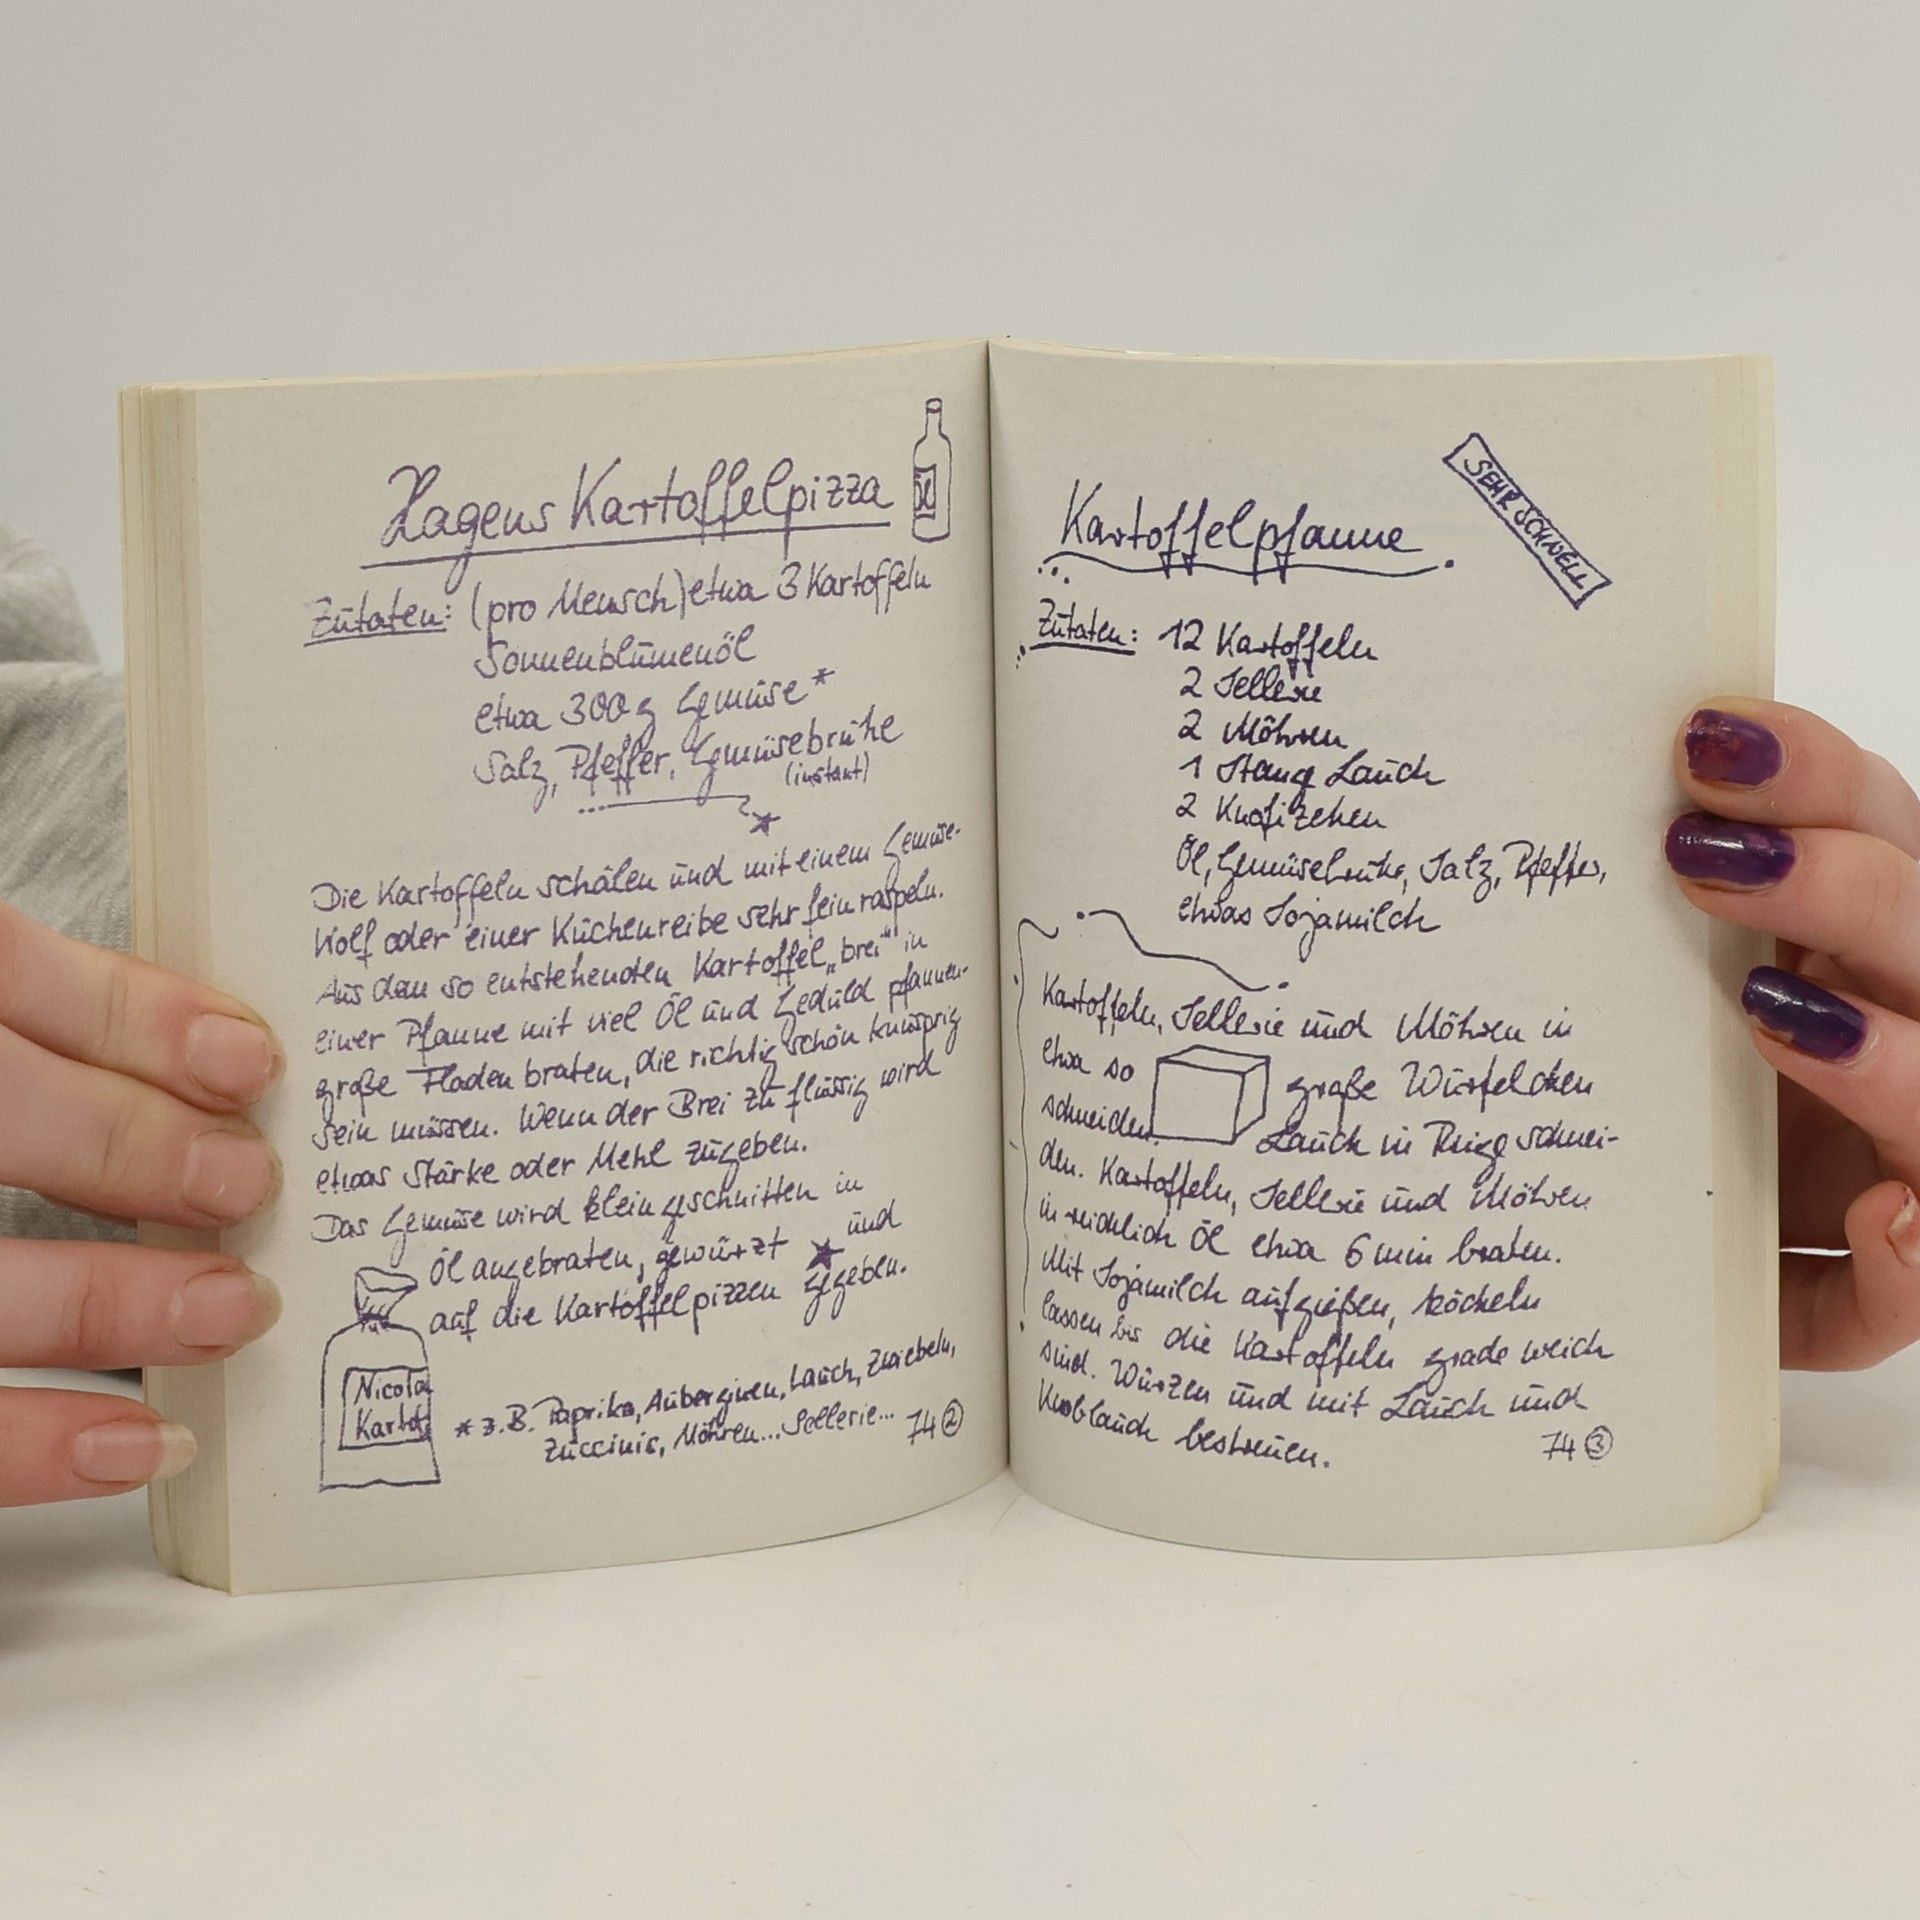 Hagens Kartoffelpizza
Öl
Zutaten: (pro Mensch) etwa 3 Kartoffeln
Sonnenblumenöl
etwa 300 g Gemüse*
Salz, Pfeffer, Gemüsebrühe
(instant)
Die Kartoffeln schälen und mit einem Gemüse-
Wolf oder einer Küchenreibe sehr fein raspeln.
Aus dem so entstehenden Kartoffel„brei" in
einer Pfanne mit viel Öl und Geduld pfannen-
große Fladen braten, die richtig schön knusprig
sein müssen. Wenn der Brei zu flüssig wird
etwas Stärke oder Mehl zugeben.
Das Gemüse wird kleingeschnitten in
Öl angebraten, gewürzt und
auf die Kartoffelpizzen gegeben.
Nicola
Kartof
* z.B. Paprika, Auberginen, Lauch, Zwiebeln,
Zuccinis, Möhren... Sellerie...
74 2
Kartoffelpfanne
SEHR SCHNELL
Zutaten: 12 Kartoffeln
2 Sellerie
2 Möhren
1 Stange Lauch
2 Knofizehen
Öl, Gemüsebrühe, Salz, Pfeffer,
etwas Sojamilch
Kartoffeln, Sellerie und Möhren in
etwa so große Würfelchen
schneiden. Lauch in Ringe schnei-
den. Kartoffeln, Sellerie und Möhren
in reichlich Öl etwa 6 min braten.
Mit Sojamilch aufgießen, köcheln
lassen bis die Kartoffeln grade weich
sind. Würzen und mit Lauch und
Knoblauch bestreuen.
74 3